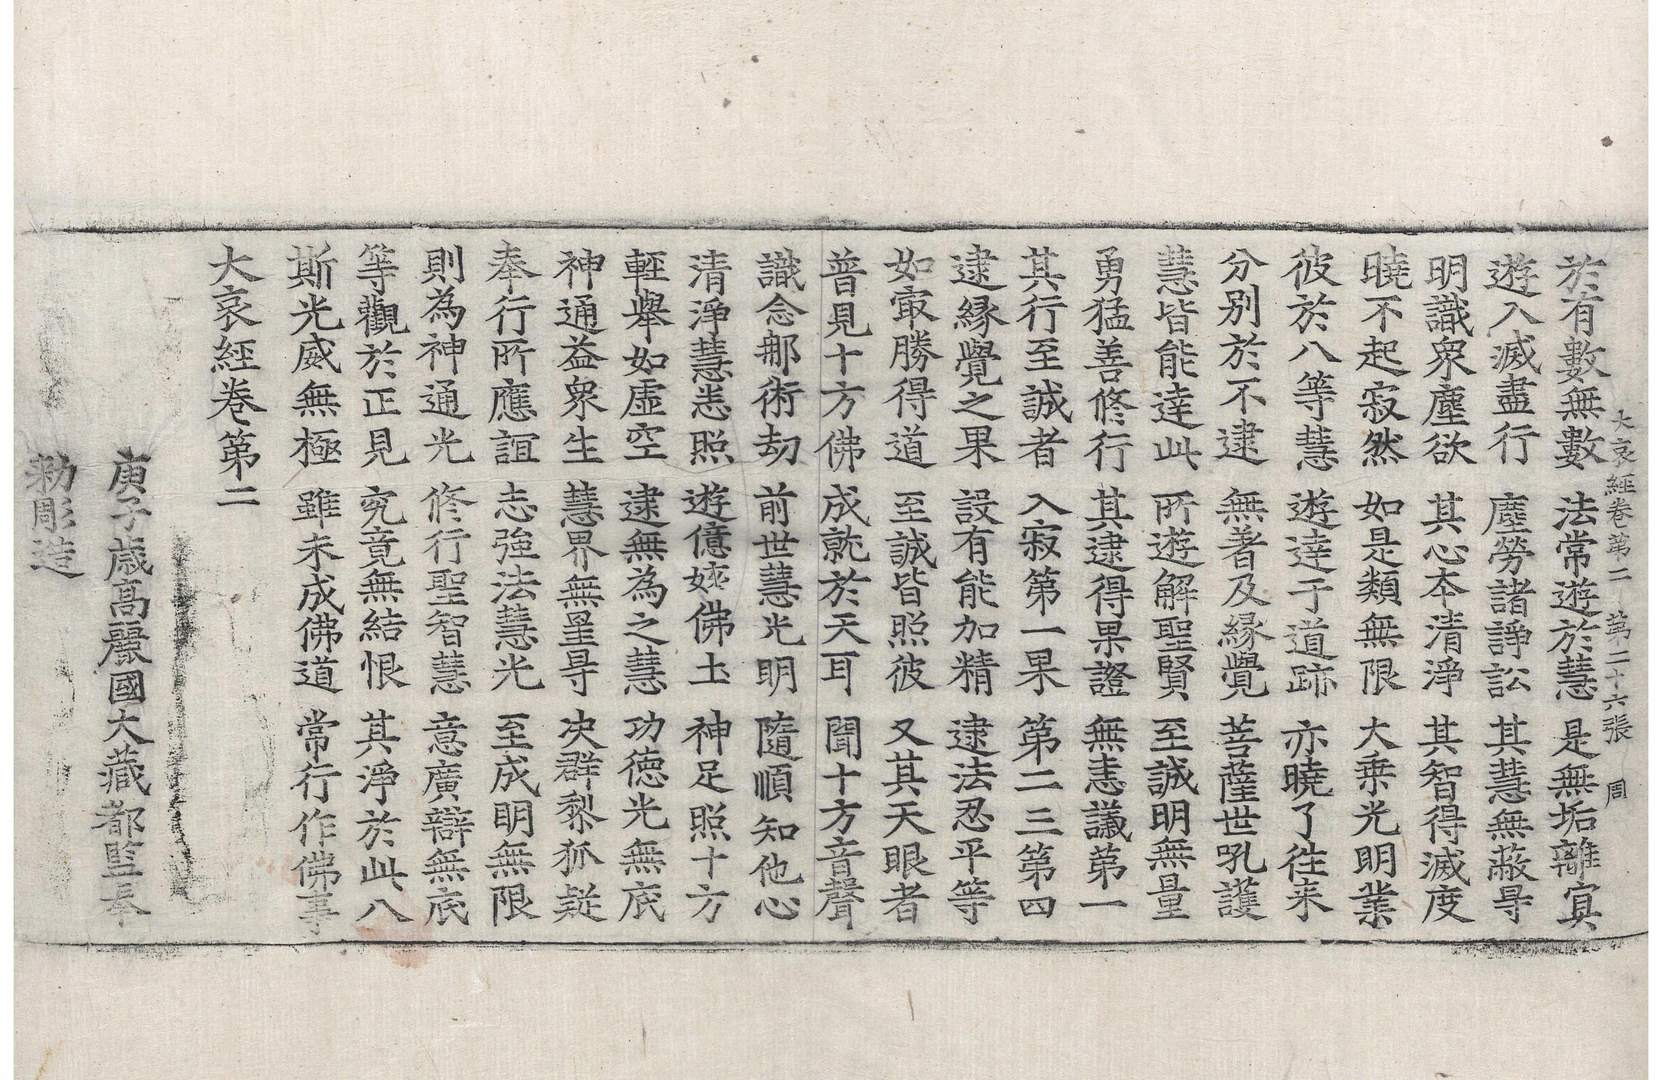 大哀經卷第二　第二十六張　周
於有數無數　法常遊於慧　是無垢離寘
遊入滅盡行　塵勞諸諍訟　其慧無蔽㝵
明識衆塵欲　其心本清淨　其智得滅度
曉不起寂然　如是類無限　大乗光明業
彼於八等慧　遊達于道跡　亦曉了往来
分别於不逮　無著及縁覺　菩薩世吼護
慧皆能達此　所遊解聖賢　至誠明無量
勇猛善修行　其逮得果證　無恚議第一
其行至誠者　入寂第一果　第二三第四
逮縁覺之果　設有能加精　逮法忍平等
如㝡勝得道　至誠皆照彼　又其天眼者
普見十方佛　成就於天耳　聞十方音聲
識念那術劫　前世慧光明　隨順知他心
清淨慧恙照　遊億姟佛土　神足照十方
輕舉如虛空　逮無為之慧　功德光無底
神通益衆生　慧界無量㝵　决群黎狐疑
奉行所應誼　志強法慧光　至成明無限
則為神通光　修行聖智慧　意廣辯無底
等觀於正見　究竟無結恨　其淨於此八
斯光威無極　雖未成佛道　常行作佛事
大哀經卷第二
庚子歳高麗國大藏都監奉
勅彫造